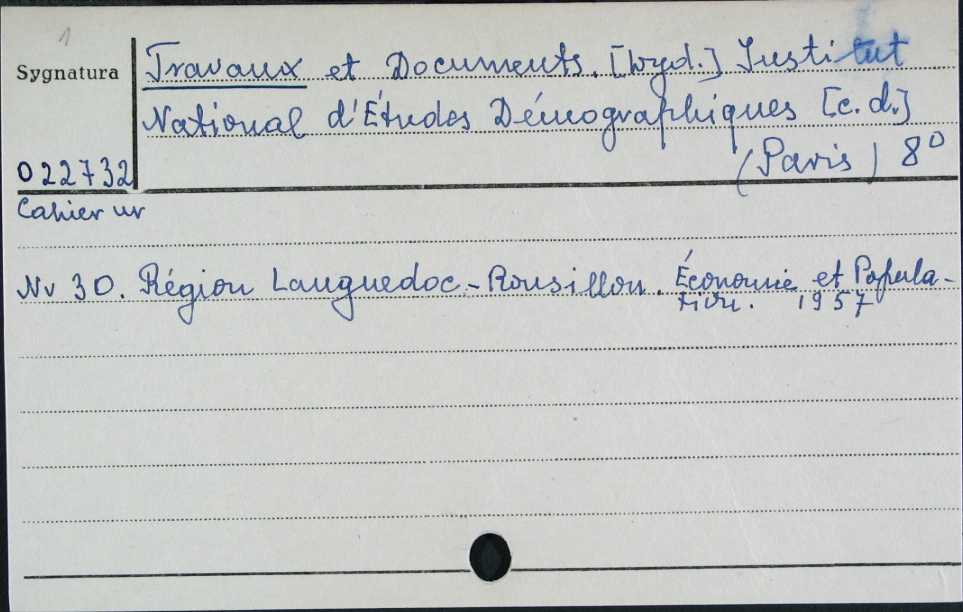 1
Sygnatura
Travaux et Documents. [Wyd.] Institut
National d'Études Démographiques [c.d.]
(Paris) 8°
022732
Cahier nr
Nr 30. Région Languedoc-Rousillon. Économie et Popula-
tion. 1957